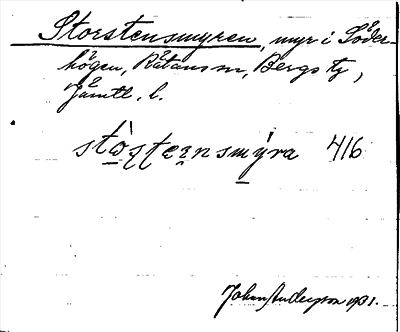 Storstensmyren, myr i Söder-
högen, Råtans sn, Bergs tg,
Jämtl. l.
stòste̜nsmýra 416
Johan Anderson 1931.